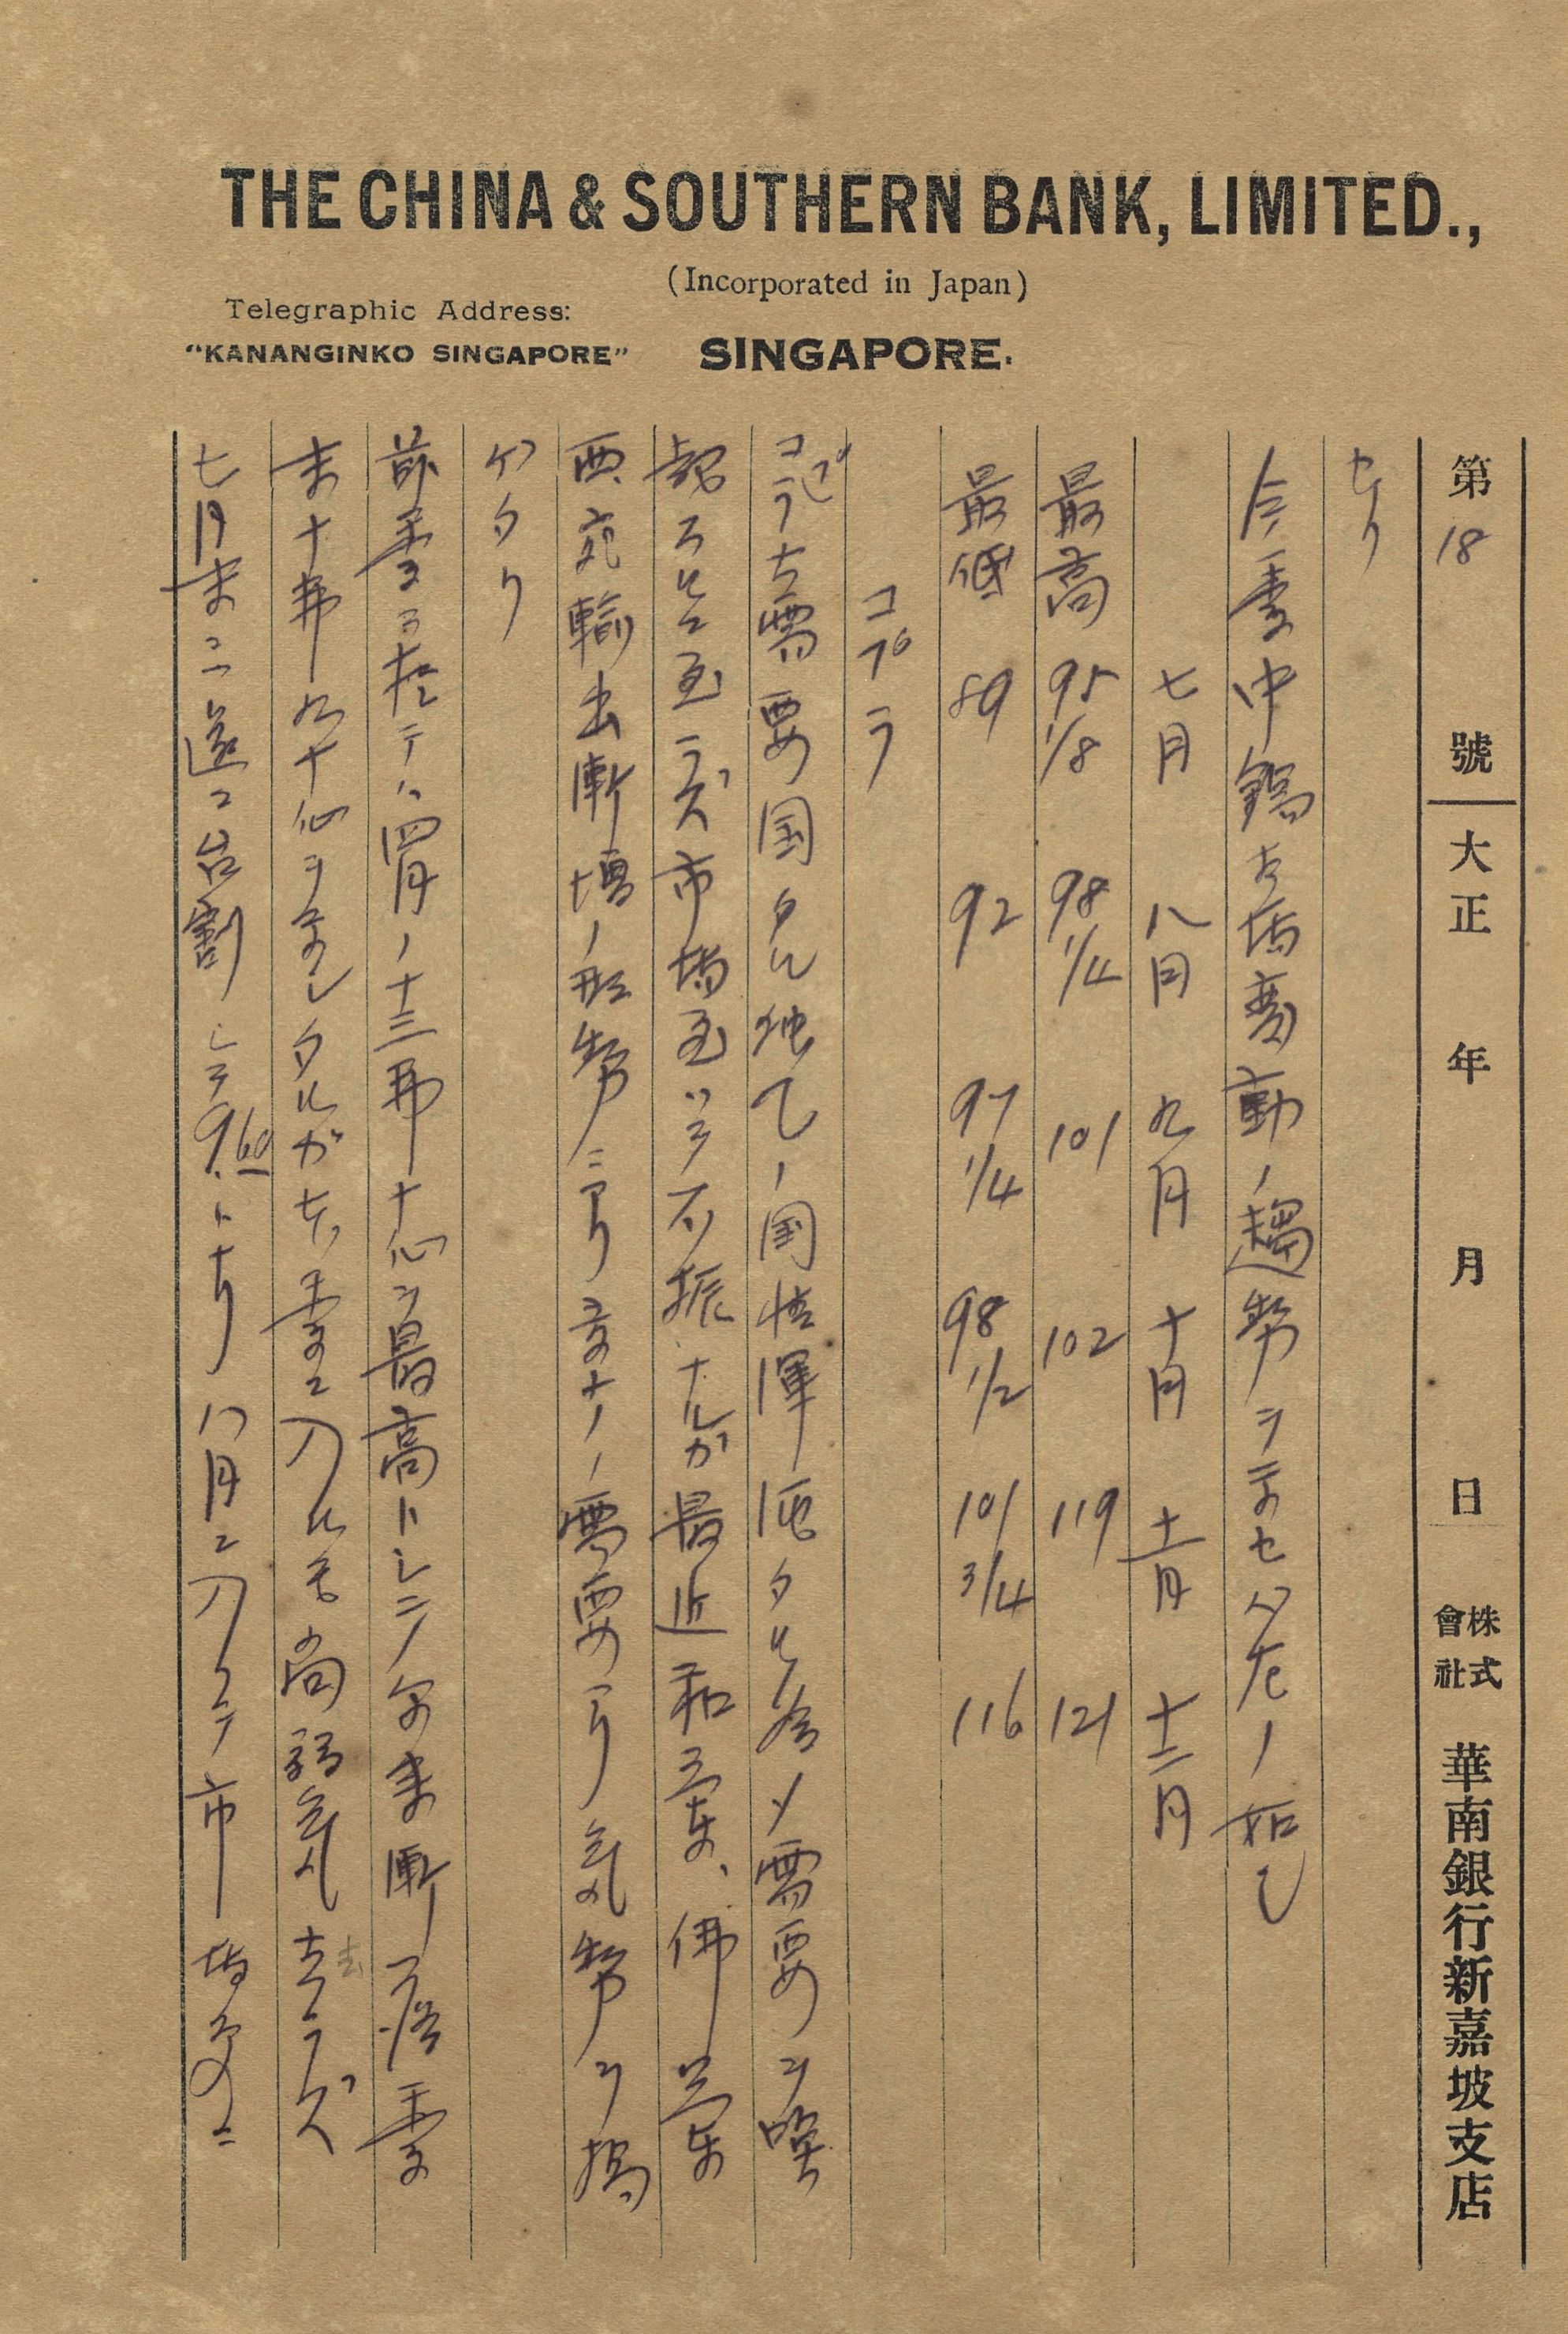 THE CHINA & SOUTHERN BANK, LIMITED.,
(Incorporated in Japan)
Telegraphic Address:
"KANANGINKO SINGAPORE"
SINGAPORE.
第18號 大正 年 月 日 株式會社 華南銀行新嘉坡支店
セリ
今季中錫相場変動ノ趨勢ヲ示セバ左ノ如シ
七月 八月 九月 十月 十一月 十二月
最高 95 1/8 98 1/4 101 102 119 121
最低 89 92 97 1/4 98 1/2 101 3/4 116
コプラ
コプラ大需要国タル独乙ノ国情 タメ需要ヲ喚
起スルニ至ラズ市場至ツテ不振ナルガ最近和蘭、佛蘭
西宛輸出漸増ノ形勢ニアリ ノ需要アリ気勢ヲ揚
ゲタリ
前季ニ於テハ四月ノ十三弗十仙ヲ最高トシテ漸 季
末十弗九十仙ヲ示シタルガ本季ニ入ルモ尚弱気去ラズ
七月末ニハ遂ニ台割シテ9.60トナリ八月ニ入リテ市場